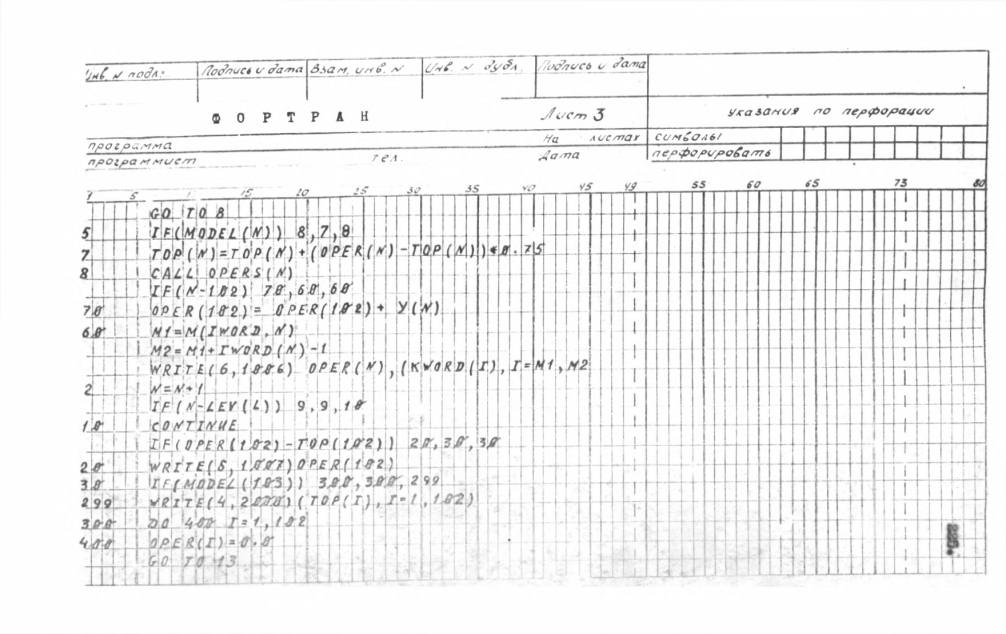 Инв. N подл. Подпись и дата Взам. инв. N Инв. N дубл. Подпись и дата
ФОРТРАН Лист 3 Указания по перфорации
программа На листах символы
программист тел. Дата перфорировать
1 5 1 15 20 25 30 35 40 45 49 55 60 65 73 80
GO TO 8
5 IF(MODEL(N)) 8,7,8
7 TOP(N)=TOP(N)+(OPER(N)-TOP(N))*0.75
8 CALL OPERS(N)
IF(N-102) 70,60,60
70 OPER(102)= OPER(102)+ Y(N)
60 M1=M(IWORD,N)
M2=M1+IWORD(N)-1
WRITE(6,1006) OPER(N),(KWORD(I),I=M1,M2
2 N=N+1
IF(N-LEV(L)) 9,9,10
10 CONTINUE
IF(OPER(102)-TOP(102)) 20,30,30
20 WRITE(6,1007)OPER(102)
30 IF(MODEL(103)) 300,300,299
299 WRITE(4,2000)(TOP(I),I=1,102)
300 DO 400 I=1,102
400 OPER(I)=0.0
GO TO 13